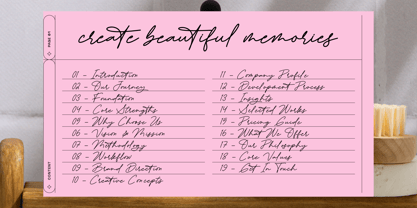 create beautiful memories
PAGE BY:
CONTENT
01 - Introduction
02 - Our Journey
03 - Foundation
04 - Core Strengths
05 - Why Choose Us
06 - Vision & Mission
07 - Methodology
08 - Workflow
09 - Brand Direction
10 - Creative Concepts
11 - Company Profile
12 - Development Process
13 - Insights
14 - Selected Works
15 - Pricing Guide
16 - What We Offer
17 - Our Philosophy
18 - Core Values
19 - Get In Touch